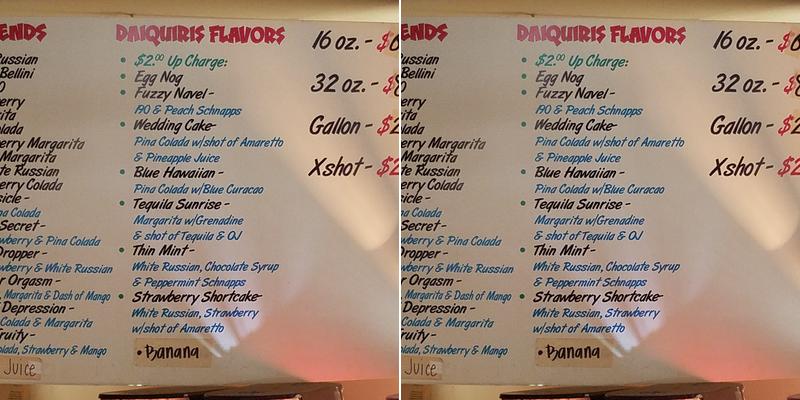 ENDS
Russian
Bellini
erry
rita
olada
erry Margarita
Margarita
te Russian
erry Colada
sicle -
na Colada
Secret -
wberry & Pina Colada
Dropper -
wberry & White Russian
r Orgasm -
Margarita & Dash of Mango
Depression -
Colada & Margarita
Fruity -
olada, Strawberry & Mango
Juice
DAIQUIRIS FLAVORS
• $2.00 Up Charge:
• Egg Nog
• Fuzzy Navel -
190 & Peach Schnapps
• Wedding Cake -
Pina Colada w/shot of Amaretto
& Pineapple Juice
• Blue Hawaiian -
Pina Colada w/Blue Curacao
• Tequila Sunrise -
Margarita w/Grenadine
& shot of Tequila & OJ
• Thin Mint -
White Russian, Chocolate Syrup
& Peppermint Schnapps
• Strawberry Shortcake -
White Russian, Strawberry
w/shot of Amaretto
• Banana
16 oz. - $
32 oz. - $
Gallon - $2
Xshot - $2
ENDS
Russian
Bellini
erry
rita
olada
erry Margarita
Margarita
te Russian
erry Colada
sicle -
na Colada
Secret -
wberry & Pina Colada
Dropper -
wberry & White Russian
r Orgasm -
Margarita & Dash of Mango
Depression -
Colada & Margarita
Fruity -
olada, Strawberry & Mango
Juice
DAIQUIRIS FLAVORS
• $2.00 Up Charge:
• Egg Nog
• Fuzzy Navel -
190 & Peach Schnapps
• Wedding Cake -
Pina Colada w/shot of Amaretto
& Pineapple Juice
• Blue Hawaiian -
Pina Colada w/Blue Curacao
• Tequila Sunrise -
Margarita w/Grenadine
& shot of Tequila & OJ
• Thin Mint -
White Russian, Chocolate Syrup
& Peppermint Schnapps
• Strawberry Shortcake -
White Russian, Strawberry
w/shot of Amaretto
• Banana
16 oz. - $
32 oz. - $
Gallon - $2
Xshot - $2